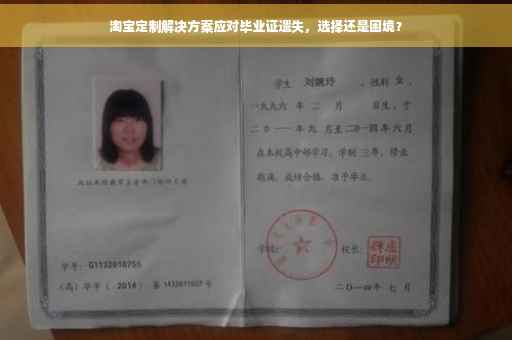 淘宝定制解决方案应对毕业证遗失，选择还是困境？
学生 刘婉玲 ，性别 女 ，
一九九六 年 二 月 日生，于
二〇一一年九 月至二〇一四年 六月
在本校高中部学习，学制 三年，修业
期满，成绩合格，准予毕业。
学校： 校长：
学号： G1132010755
（高）毕字（ 2014 ）第 1432011027 号
二〇一四年 七 月